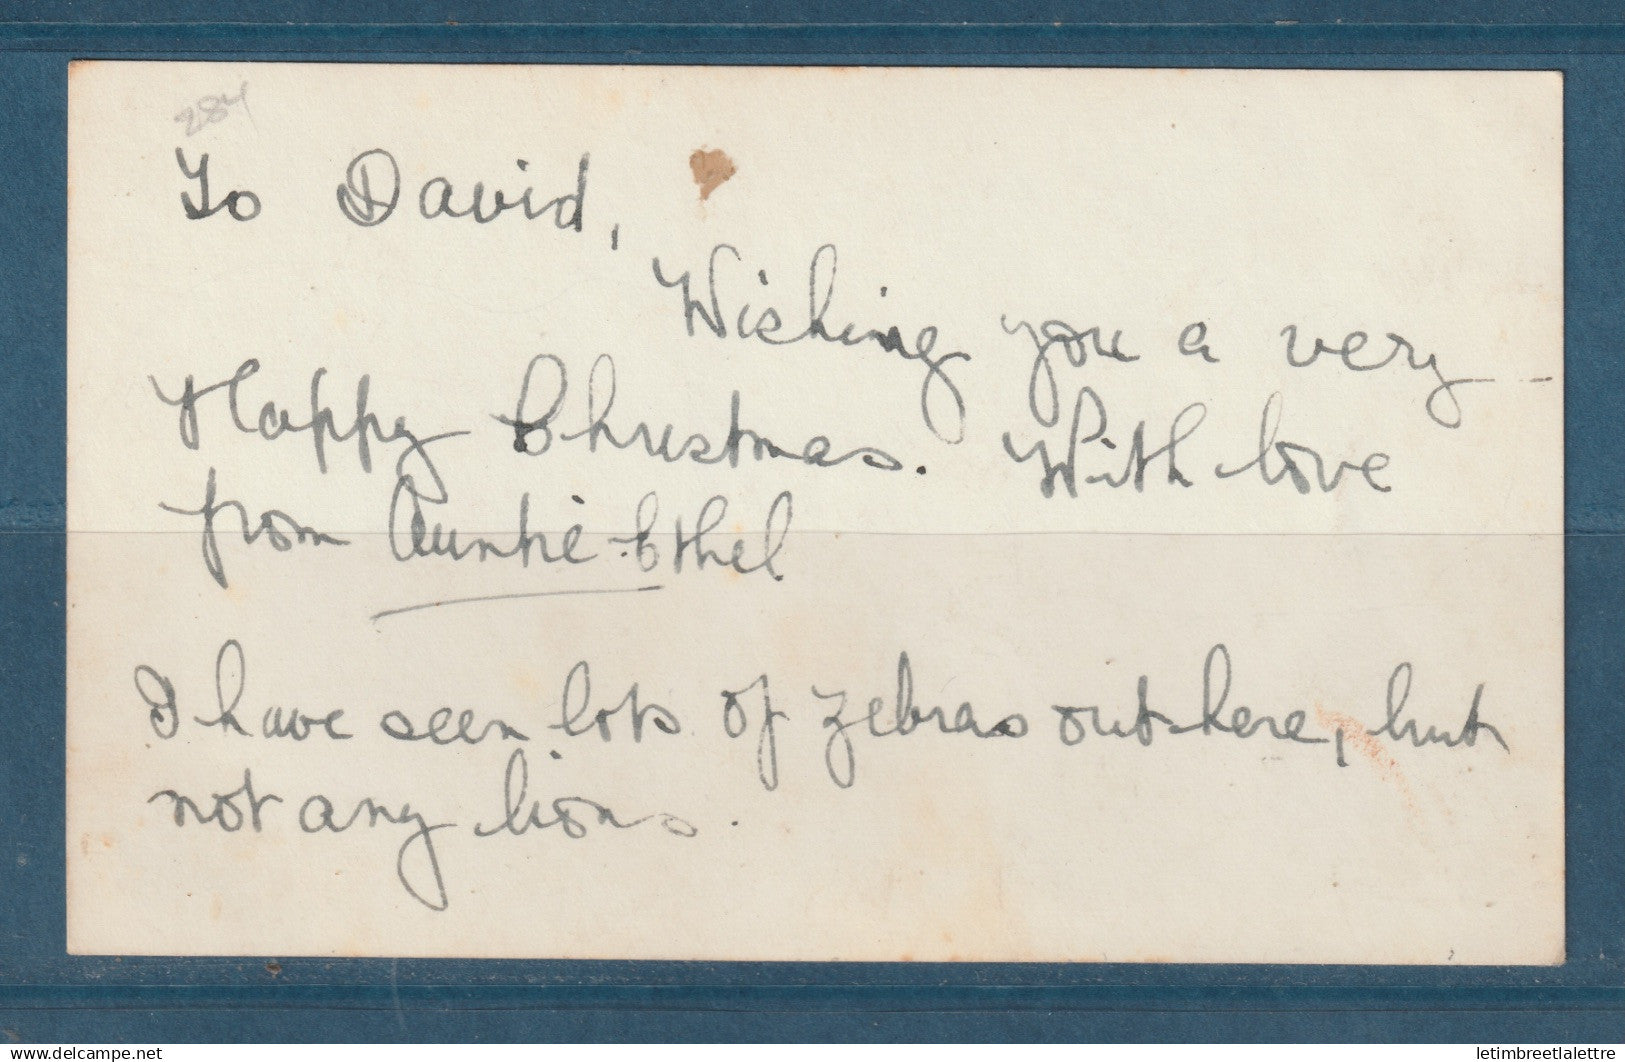 284
To David,
Wishing you a very
Happy Christmas. With love
from Auntie Ethel
I have seen lots of zebras out here, but
not any lions.
delcampe.net
letimbreetlalettre